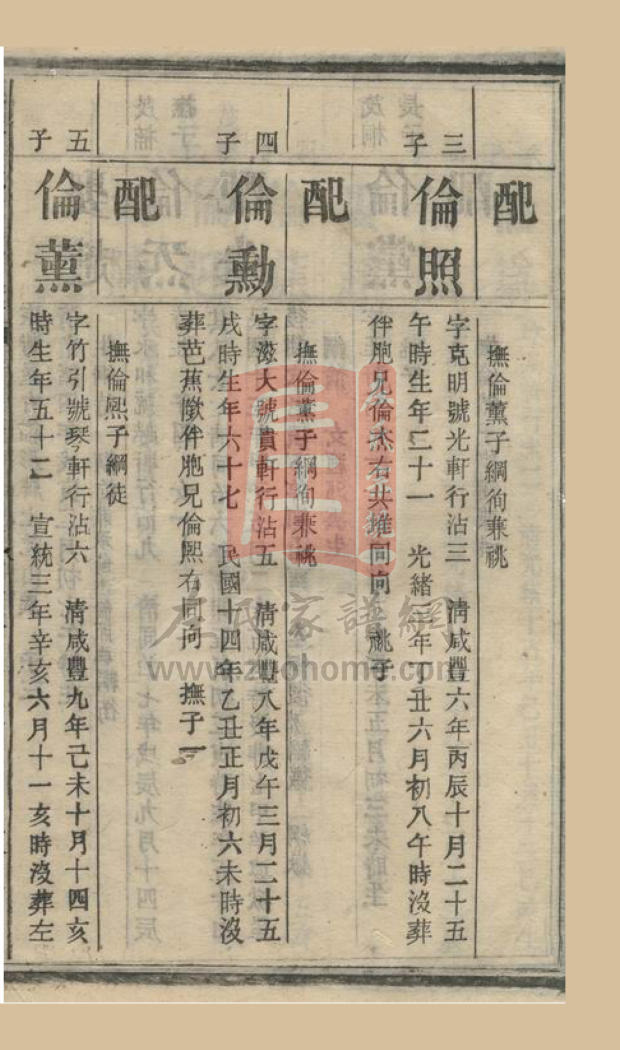 配
撫倫薰子綱徇兼祧
三子
倫照
字克明號光軒行沾三 清咸豐六年丙辰十月二十五
午時生年二十一 光緒三年丁丑六月初八午時沒葬
伴胞兄倫杰右共堆同向 祧子一
配
撫倫薰子綱徇兼祧
四子
倫勳
字滋大號貴軒行沾五 清咸豐八年戊午三月二十五
戌時生年六十七 民國十四年乙丑正月初六未時沒
葬芭蕉墩伴胞兄倫熙右同向 撫子一
配
撫倫熙子綱徒
五子
倫薰
字竹引號琴軒行沾六 清咸豐九年己未十月十四亥
時生年五十二 宣統三年辛亥六月十一亥時沒葬左
家譜網
www.zuohome.com